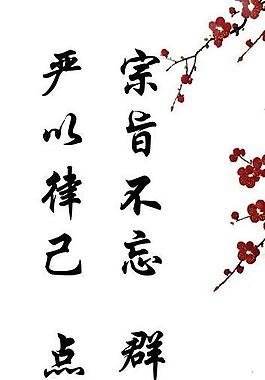 宗旨不忘 群
严以律己 点